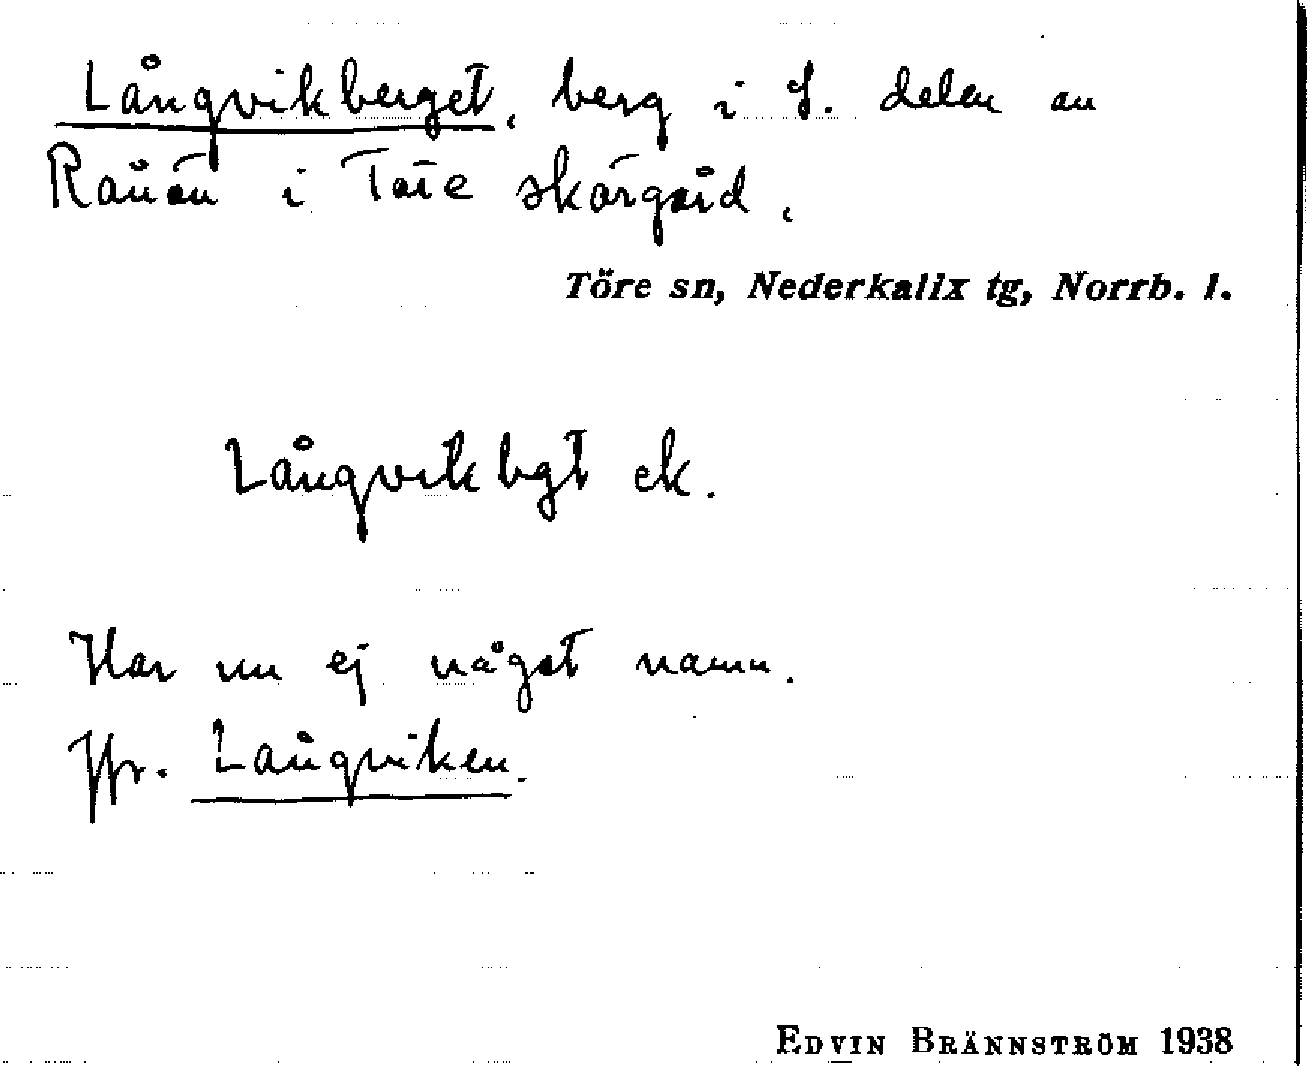 Långvikberget, berg i S. delen av
Rånön i Töre skärgård.
Töre sn, Nederkalix tg, Norrb. l.
Långvikbgt ek.
Har nu ej något namn.
Jfr. Långviken.
EDVIN BRÄNNSTRÖM 1938